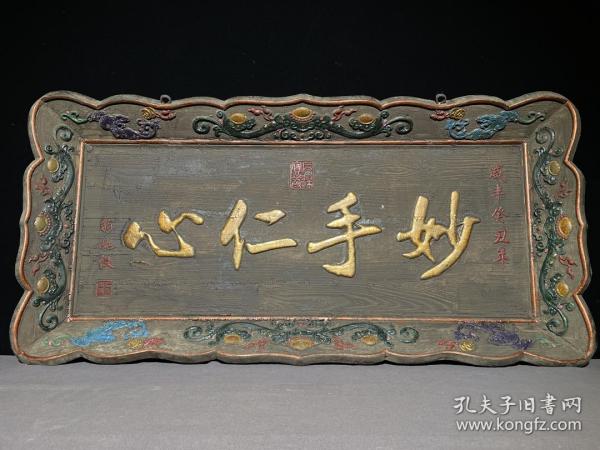 咸丰癸丑年
妙手仁心
孔夫子旧书网
www.kongfz.com